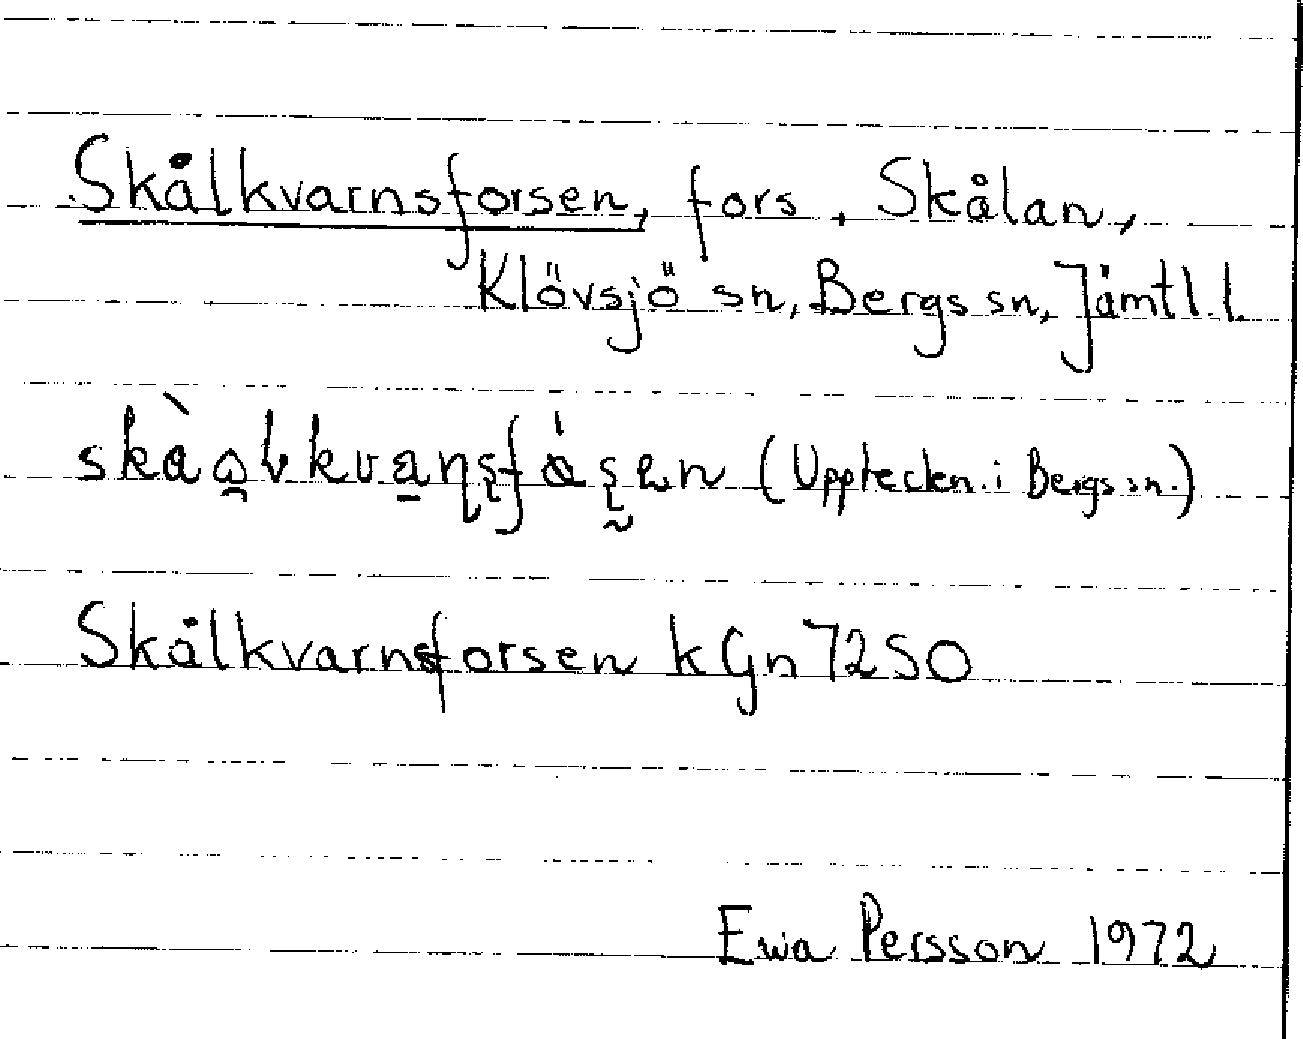 Skålkvarnsforsen, fors, Skålan,
Klövsjö sn, Bergs sn, Jämtl. l.
(Uppteckn. i Bergs sn.)
Skålkvarnsforsen k Gn 7250
Ewa Persson 1972